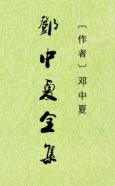 鄧中夏全集
〔作者〕邓中夏